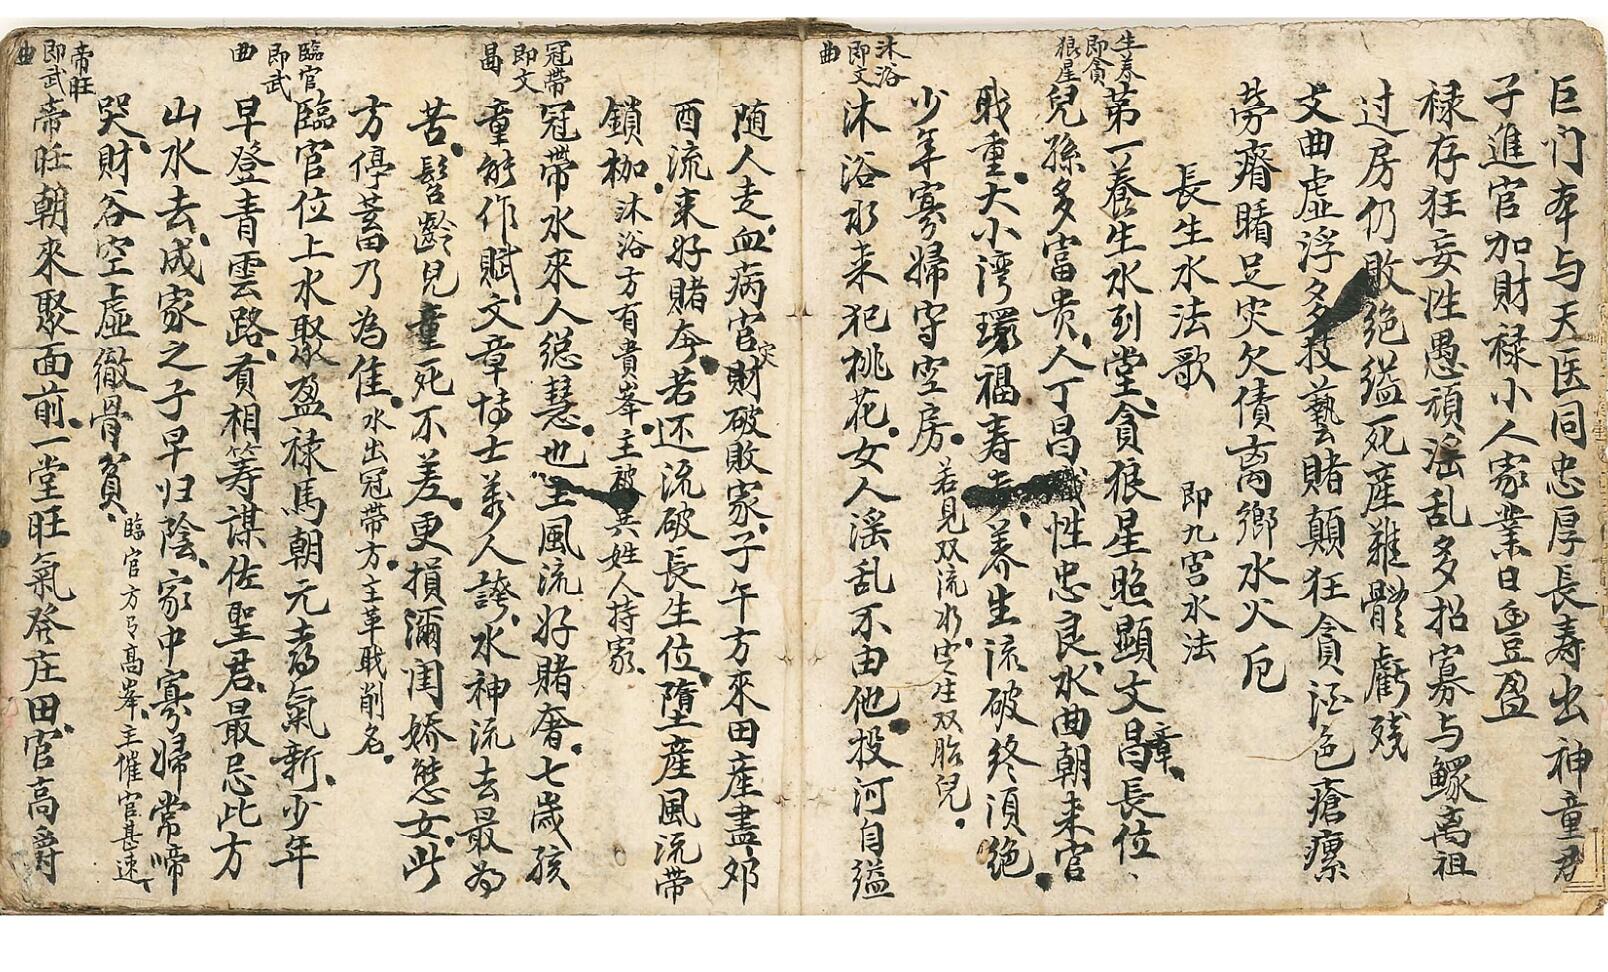 巨门奔与天医同忠厚長寿出神童君
子進官加財禄小人家業日豐盈
禄存狂妄性愚頑滛乱多招寡与鰥离祖
过房仍敗绝縊死産難體虧残
文曲虚浮多技藝賭顛狂貪酒色瘡瘰
劳瘠瞎足灾欠债离鄉水火厄
長生水法歌　即九宫水法
生养
即貪
狼星
苐一養生水到堂貪狼星照顯文昌章長位
兒孫多富贵人丁昌熾性忠良水曲朝来官
戢重大小湾環福寿長養生流破终湏绝
少年寡婦守空房 若見双流水定生双胎兒
沐浴
即文
曲
沐浴水来犯桃花女人滛乱不由他投河自縊
随人走血病官灾財破敗家子午方來田産盡夘
酉流来好賭奔若还流破長生位堕産風流带
鎖枷 沐浴方有貴峯主被共姓人持家
冠帶
即文
昌
冠帶水來人慇慧也主風流好賭奢七歲孩
童能作賦文章博士萬人誇水神流去最为
苦髫齡兒童死不差更損瀰閨娇態女此
方停蓄乃為佳 水出冠带方主革戢削名
臨官
即武
曲
臨官位上水聚盈禄馬朝元喜氣新少年
早登青雲路貟相籌谋佐聖君最忌此方
山水去成家之子早归陰家中寡婦常啼
哭財谷空虚徹骨貧 臨官方丂高峯主催官甚速
帝旺
即武
曲
帝旺朝來聚面前一堂旺氣発庄田官高爵